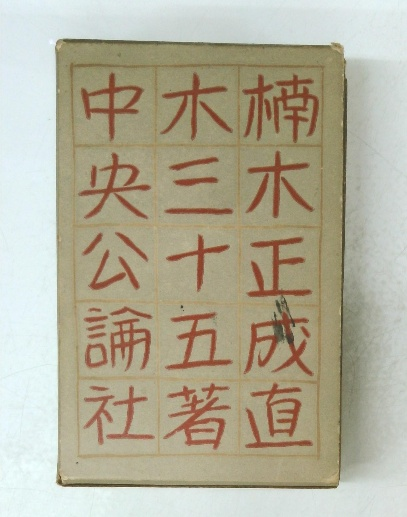 楠木正成直
木三十五著
中央公論社